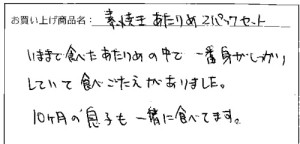 お買い上げ商品名: 素焼き あたりめ 2パックセット
いままで食べたあたりめの中で 一番身がしっかり
していて 食べごたえがありました。
10ヶ月の息子も 一緒に食べてます。